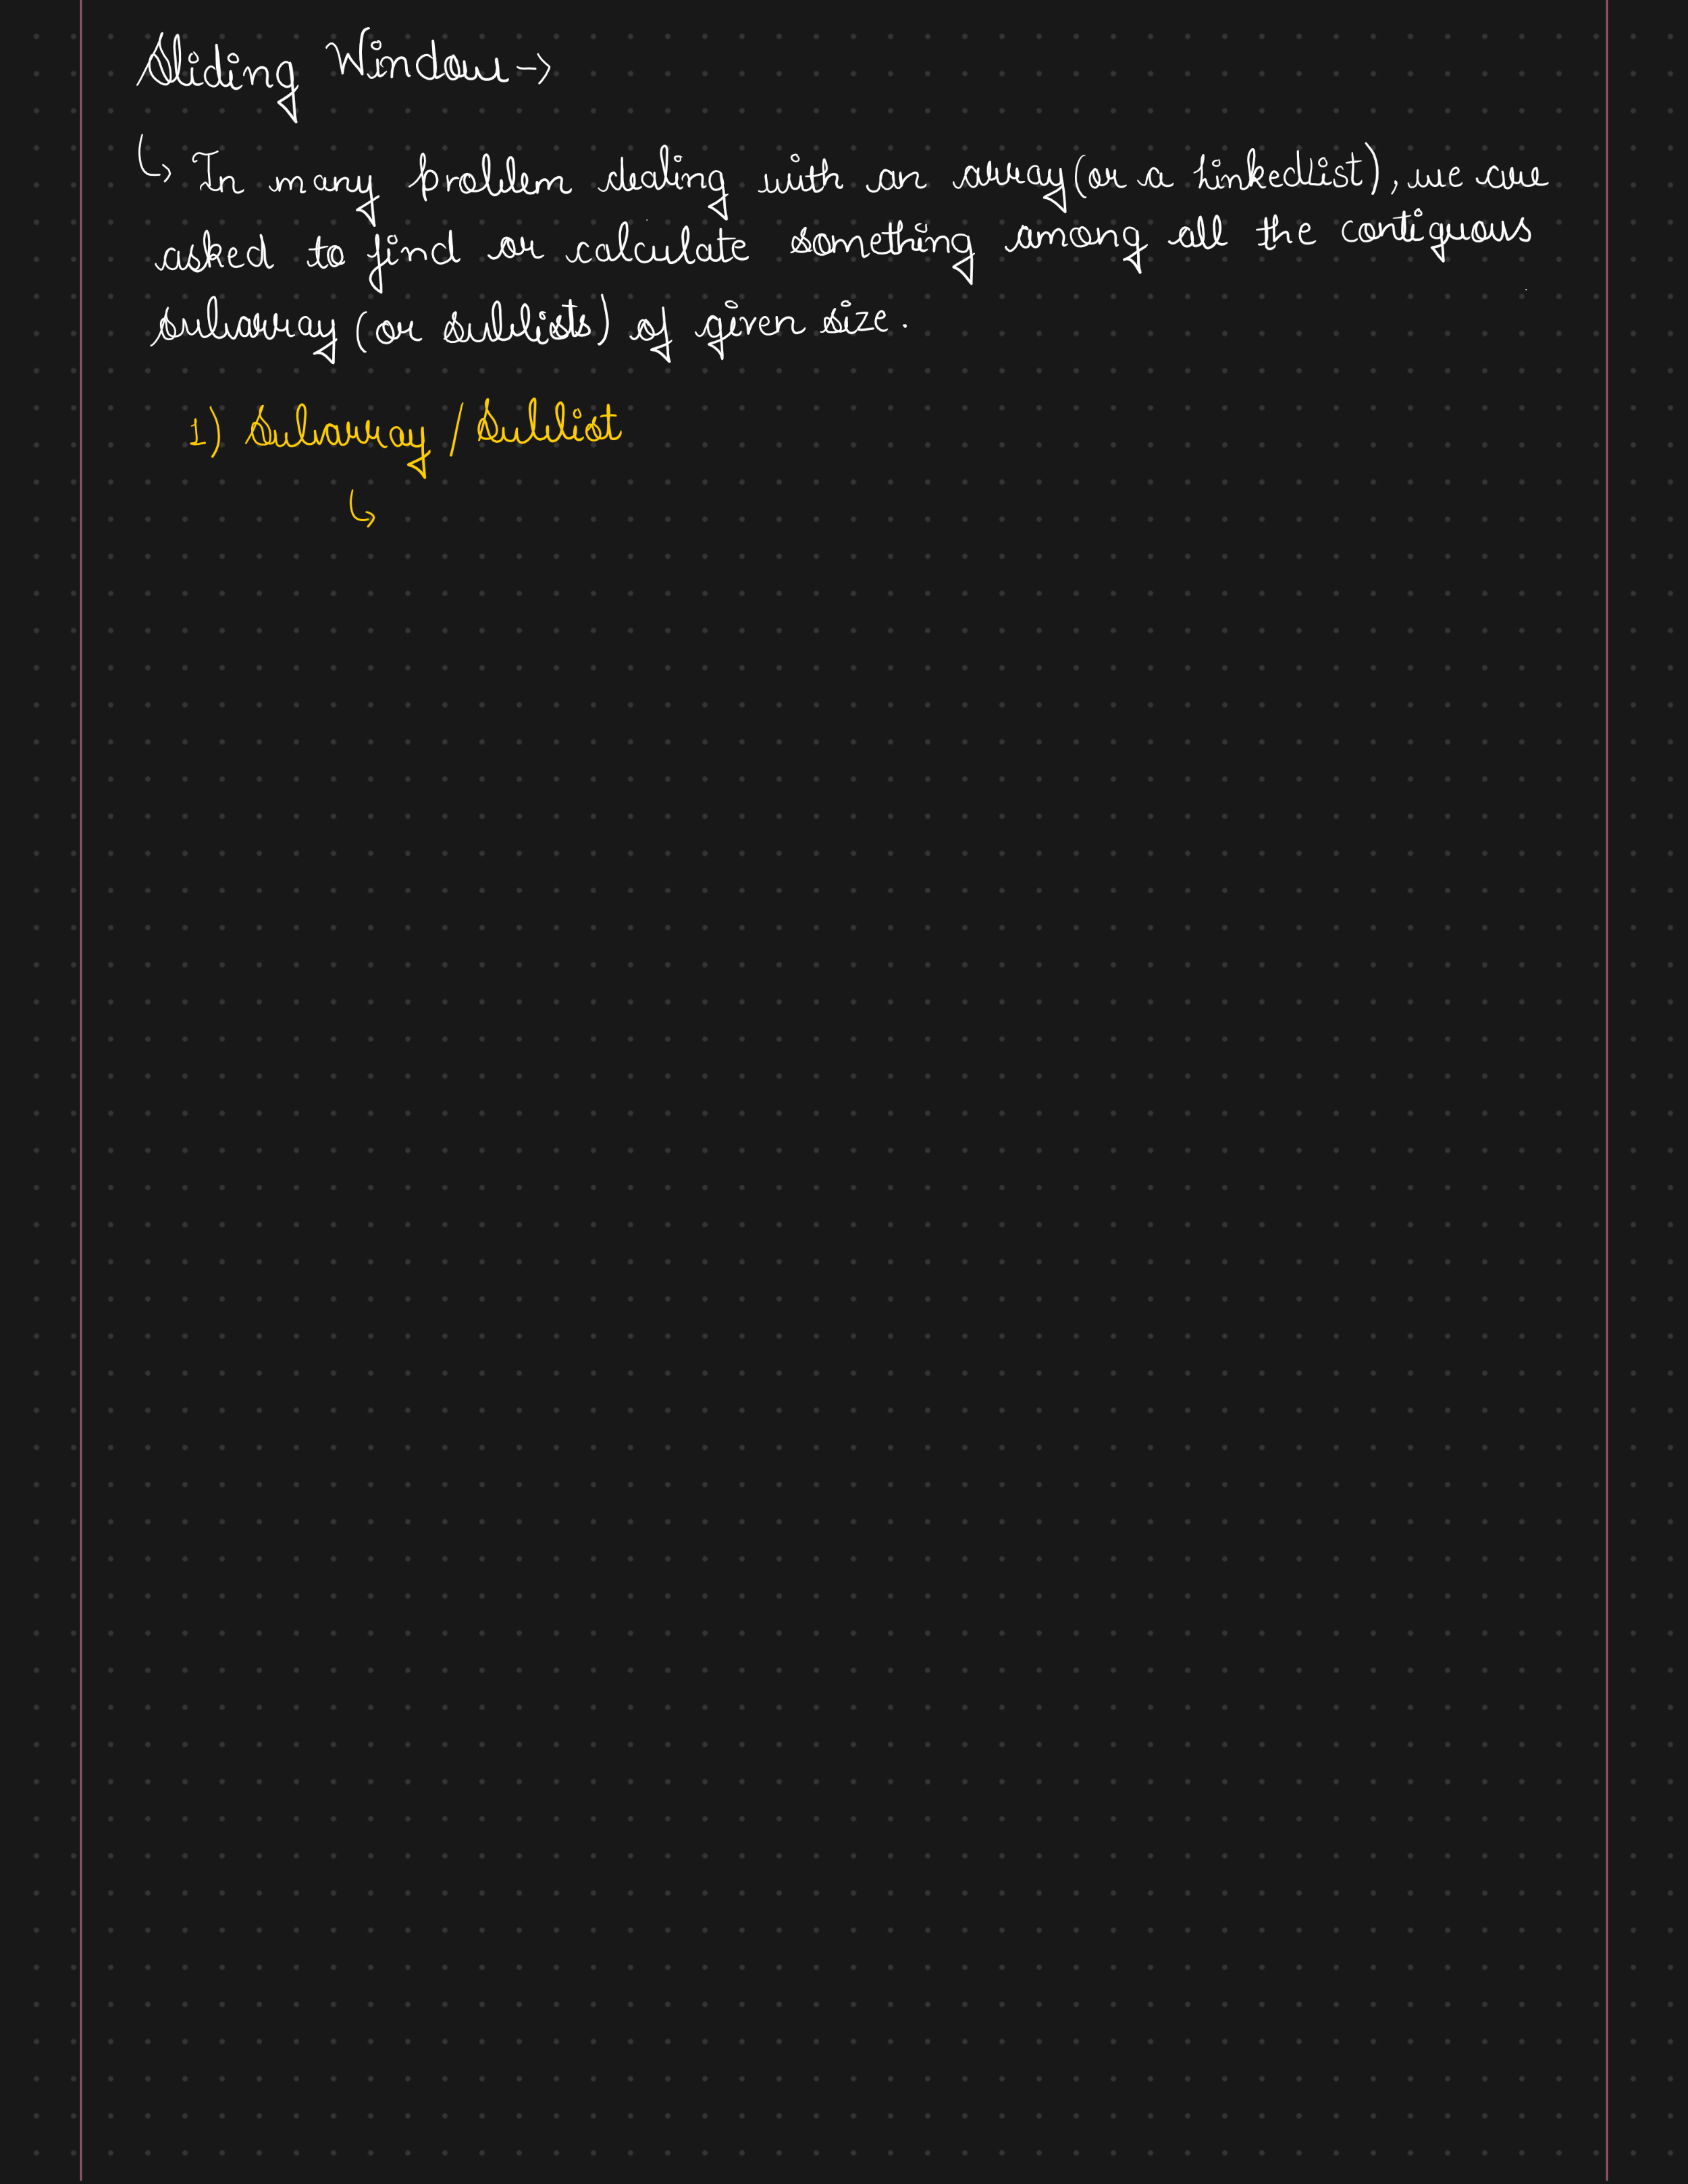 Sliding Window →
↳ In many problem dealing with an array (or a LinkedList), we are
asked to find or calculate something among all the contiguous
subarray (or sublists) of given size.
1) Subarray / Sublist
↳